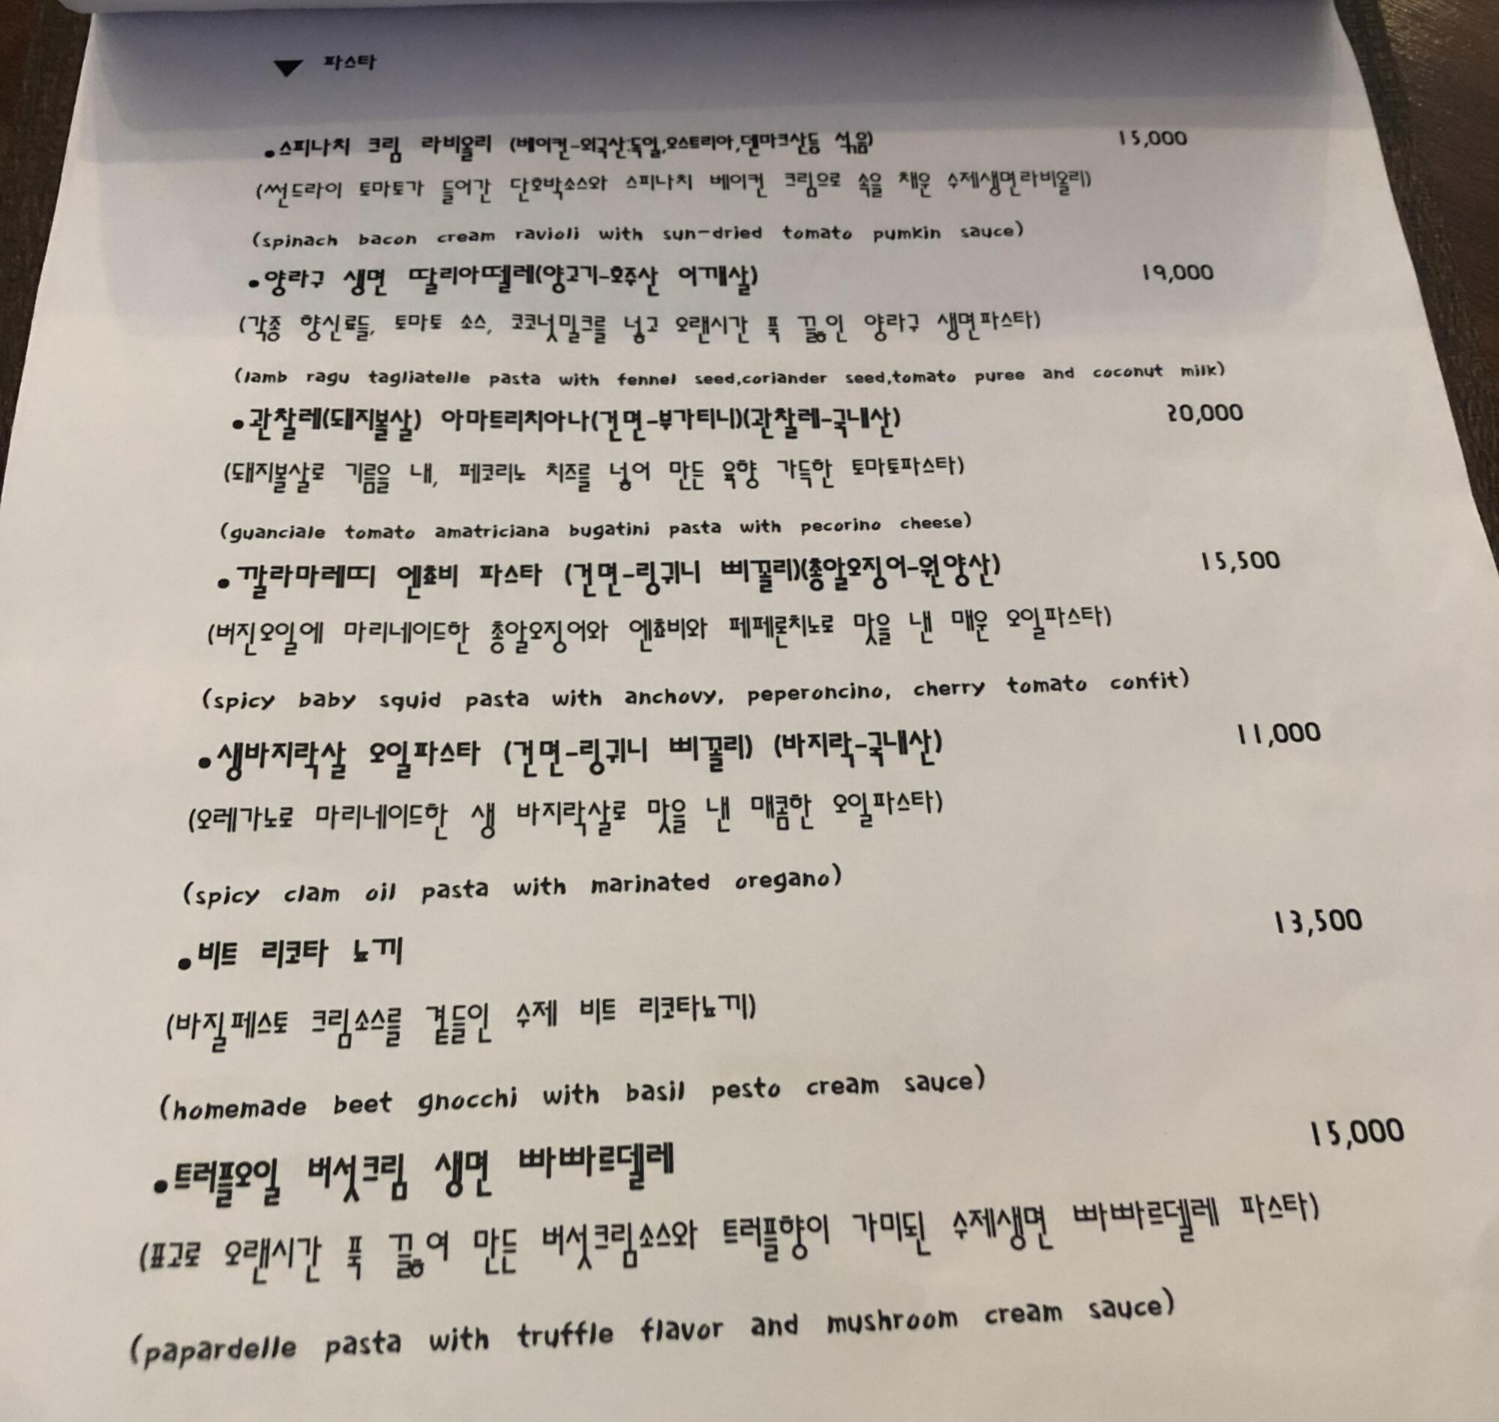 ▼ 파스타
•스피나치 크림 라비올리 (베이컨-외국산:독일,오스트리아,덴마크산등 섞음) 15,000
(썬드라이 토마토가 들어간 단호박소스와 스피나치 베이컨 크림으로 속을 채운 수제생면라비올리)
(spinach bacon cream ravioli with sun-dried tomato pumkin sauce)
•양라구 생면 딸리아뗄레(양고기-호주산 어깨살) 19,000
(각종 향신료들, 토마토 소스, 코코넛밀크를 넣고 오랜시간 푹 끓인 양라구 생면파스타)
(lamb ragu tagliatelle pasta with fennel seed,coriander seed,tomato puree and coconut milk)
•관찰레(돼지볼살) 아마트리치아나(건면-부가티니)(관찰레-국내산) 20,000
(돼지볼살로 기름을 내, 페코리노 치즈를 넣어 만든 육향 가득한 토마토파스타)
(guanciale tomato amatriciana bugatini pasta with pecorino cheese)
•깔라마레띠 엔쵸비 파스타 (건면-링귀니 삐꼴리)(총알오징어-원양산) 15,500
(버진오일에 마리네이드한 총알오징어와 엔쵸비와 페페론치노로 맛을 낸 매운 오일파스타)
(spicy baby squid pasta with anchovy, peperoncino, cherry tomato confit)
•생바지락살 오일파스타 (건면-링귀니 삐꼴리) (바지락-국내산) 11,000
(오레가노로 마리네이드한 생 바지락살로 맛을 낸 매콤한 오일파스타)
(spicy clam oil pasta with marinated oregano)
•비트 리코타 뇨끼 13,500
(바질페스토 크림소스를 곁들인 수제 비트 리코타뇨끼)
(homemade beet gnocchi with basil pesto cream sauce)
•트러플오일 버섯크림 생면 빠빠르델레 15,000
(표고로 오랜시간 푹 끓여 만든 버섯크림소스와 트러플향이 가미된 수제생면 빠빠르델레 파스타)
(papardelle pasta with truffle flavor and mushroom cream sauce)